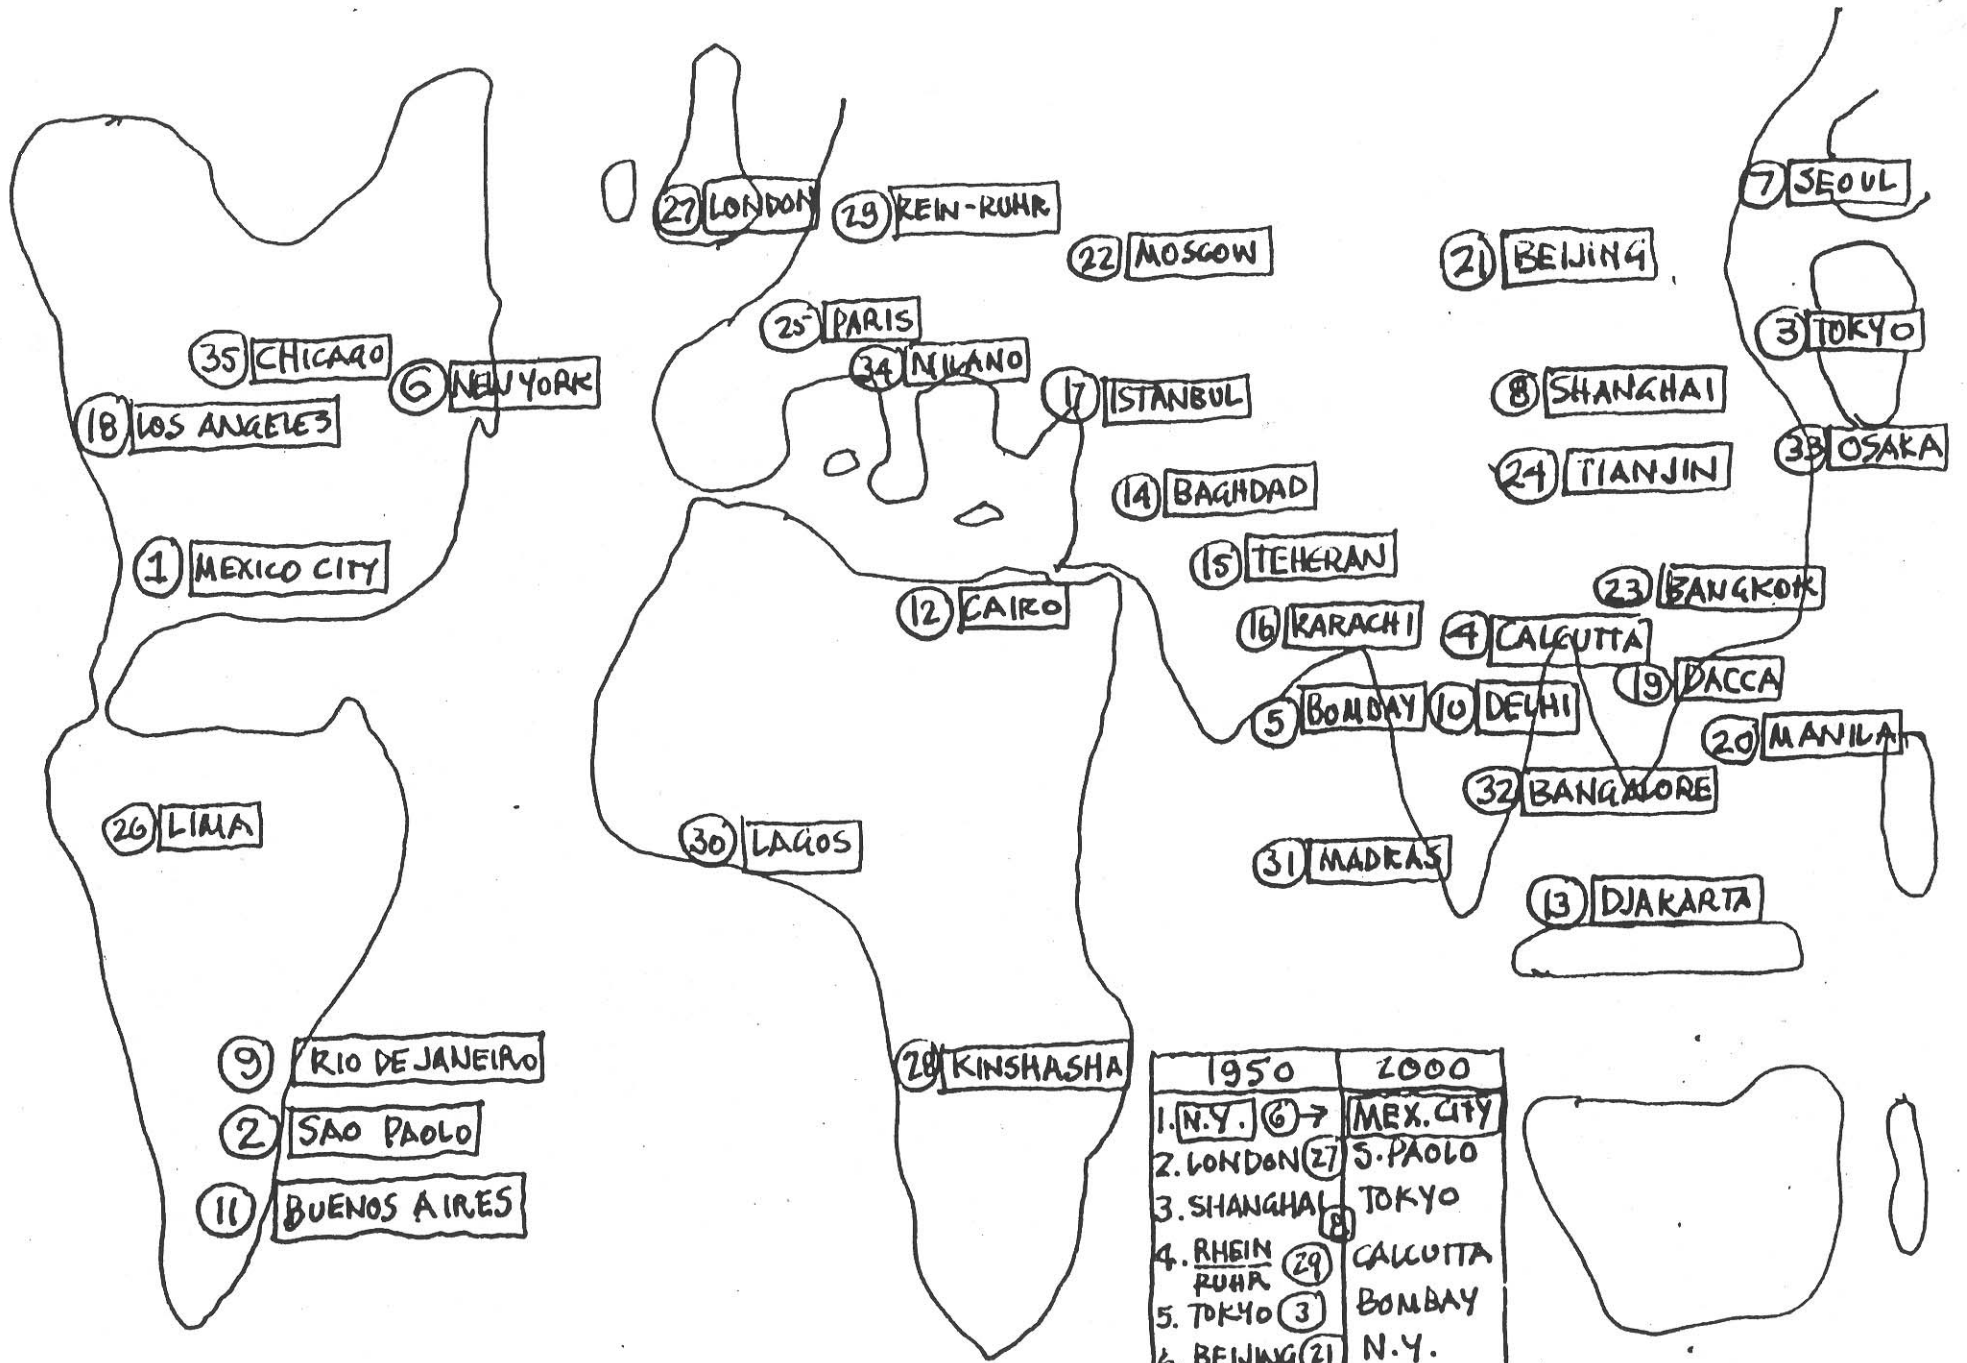 27 LONDON
29 REIN-RUHR
22 MOSCOW
21 BEIJING
7 SEOUL
25 PARIS
34 MILANO
17 ISTANBUL
35 CHICAGO
6 NEW YORK
18 LOS ANGELES
3 TOKYO
8 SHANGHAI
33 OSAKA
24 TIANJIN
14 BAGHDAD
15 TEHERAN
1 MEXICO CITY
12 CAIRO
16 KARACHI
23 BANGKOK
4 CALCUTTA
19 DACCA
5 BOMBAY
10 DELHI
20 MANILA
32 BANGALORE
26 LIMA
30 LAGOS
31 MADRAS
13 DJAKARTA
9 RIO DE JANEIRO
2 SAO PAOLO
11 BUENOS AIRES
28 KINSHASHA
1950 2000
1. N.Y. 6 → MEX. CITY
2. LONDON 27 S. PAOLO
3. SHANGHAI 8 TOKYO
4. RHEIN RUHR 29 CALCUTTA
5. TOKYO 3 BOMBAY
6. BEIJING 21 N.Y.